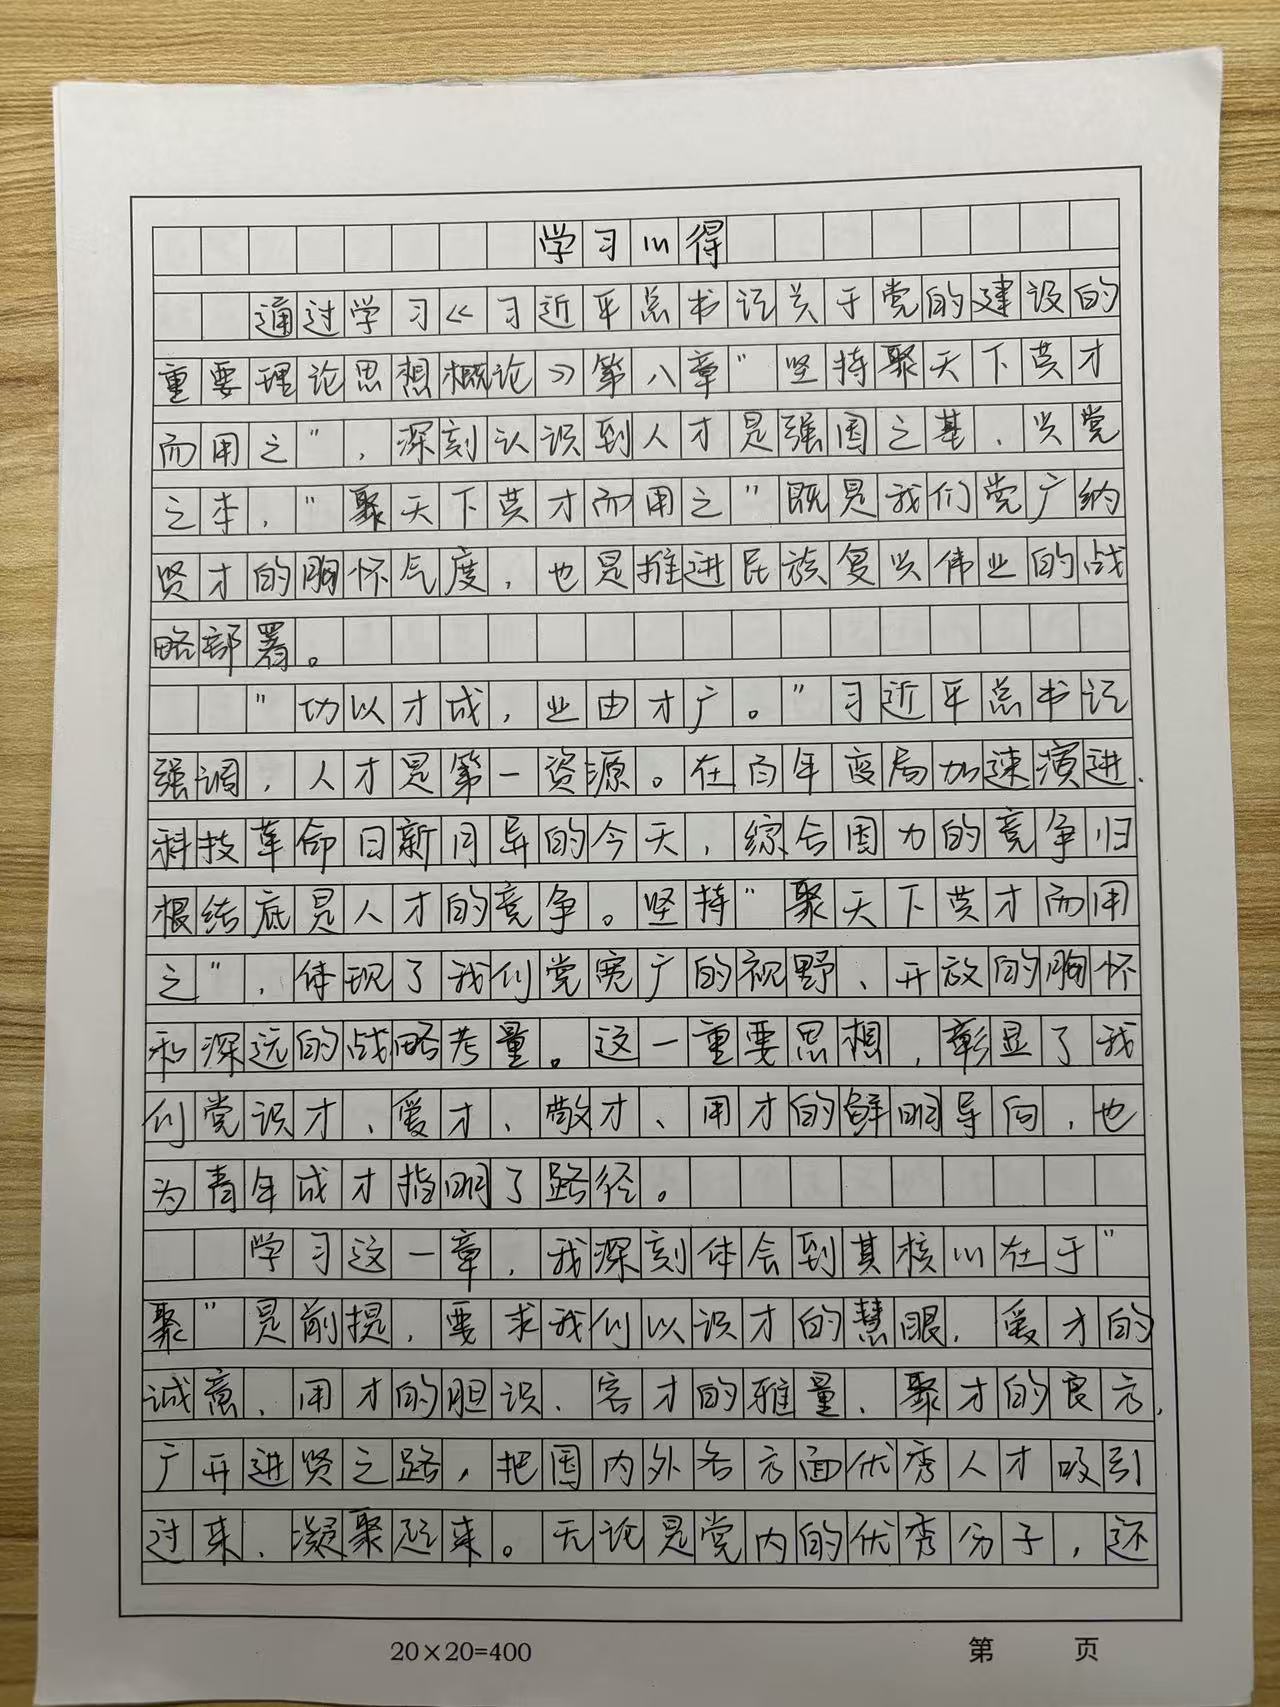 学习心得
通过学习《习近平总书记关于党的建设的
重要理论思想概论》第八章"坚持聚天下英才
而用之",深刻认识到人才是强国之基、兴党
之本,"聚天下英才而用之"既是我们党广纳
贤才的胸怀气度,也是推进民族复兴伟业的战
略部署。
"功以才成,业由才广。"习近平总书记
强调,人才是第一资源。在百年变局加速演进、
科技革命日新月异的今天,综合国力的竞争归
根结底是人才的竞争。坚持"聚天下英才而用
之",体现了我们党宽广的视野、开放的胸怀
和深远的战略考量。这一重要思想,彰显了我
们党识才、爱才、敬才、用才的鲜明导向,也
为青年成才指明了路径。
学习这一章,我深刻体会到其核心在于"
聚"是前提,要求我们以识才的慧眼、爱才的
诚意、用才的胆识、容才的雅量、聚才的良方,
广开进贤之路,把国内外各方面优秀人才吸引
过来、凝聚起来。无论是党内的优秀分子,还
20×20=400
第 页